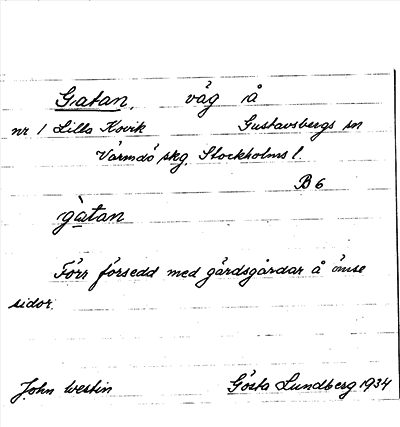 Gatan, väg å
nr 1 Lilla Kovik Gustavsbergs sn
Värmdö skg. Stockholms l.
B 6
gàtan
Förr försedd med gärdsgårdar å ömse
sidor.
John Westin Gösta Lundberg 1934